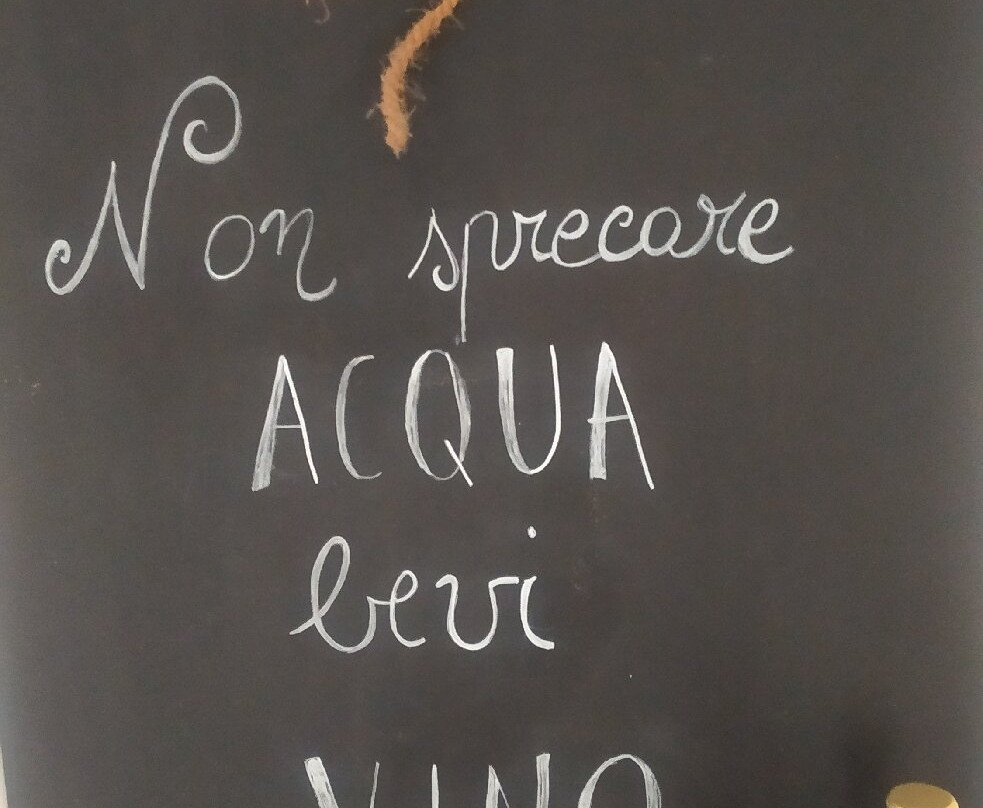 Non sprecare
ACQUA
bevi
VINO